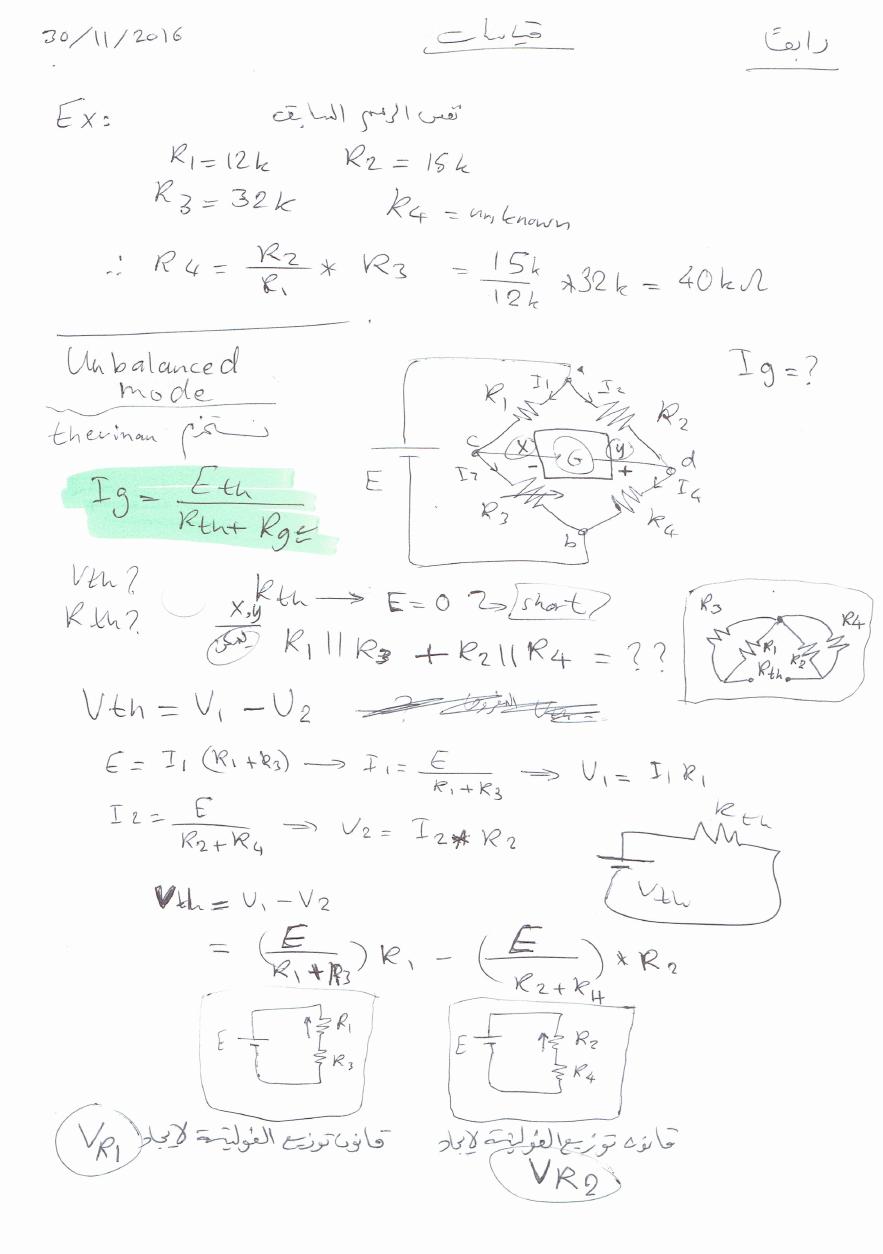 30/11/2016 قياسات رابعًا
Ex: نفس الرسم السابق
R1 = 12k R2 = 15k
R3 = 32k R4 = unknown
∴ R4 = R2/R1 * R3 = 15k/12k * 32k = 40kΩ
Unbalanced
mode
Ig = ?
therinan نستخدم
Ig = Eth / Rth + Rg
E R1 I1 a I2 R2
c x G y d
I3 - + I4
R3 b R4
Vth?
Rth?
Rth → E = 0 → short
x,y
R1 || R3 + R2 || R4 = ??
R3 R1 R2 R4
Rth
Vth = V1 - V2
E = I1 (R1 + R3) → I1 = E / R1 + R3 → V1 = I1 R1
I2 = E / R2 + R4 → V2 = I2 * R2
Rth
Vth
Vth = V1 - V2
= (E / R1 + R3) R1 - (E / R2 + R4) * R2
E R1 R3
E R2 R4
قانون توزيع الفولتية لايجاد VR1
قانون توزيع الفولتية لايجاد
VR2